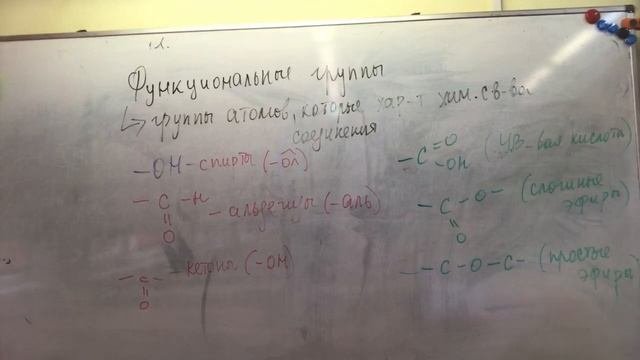 Функциональные группы
↳ группы атомов, которые хар-т хим. св-ва
соединения
-OH - спирты (-ол)
-C-H
||
O
- альдегиды (-аль)
-C- - кетоны (-он)
||
O
-C=O
-OH
(УВ-вая кислота)
-C-O-
||
O
(сложные
эфиры)
-C-O-C- (простые
эфиры)